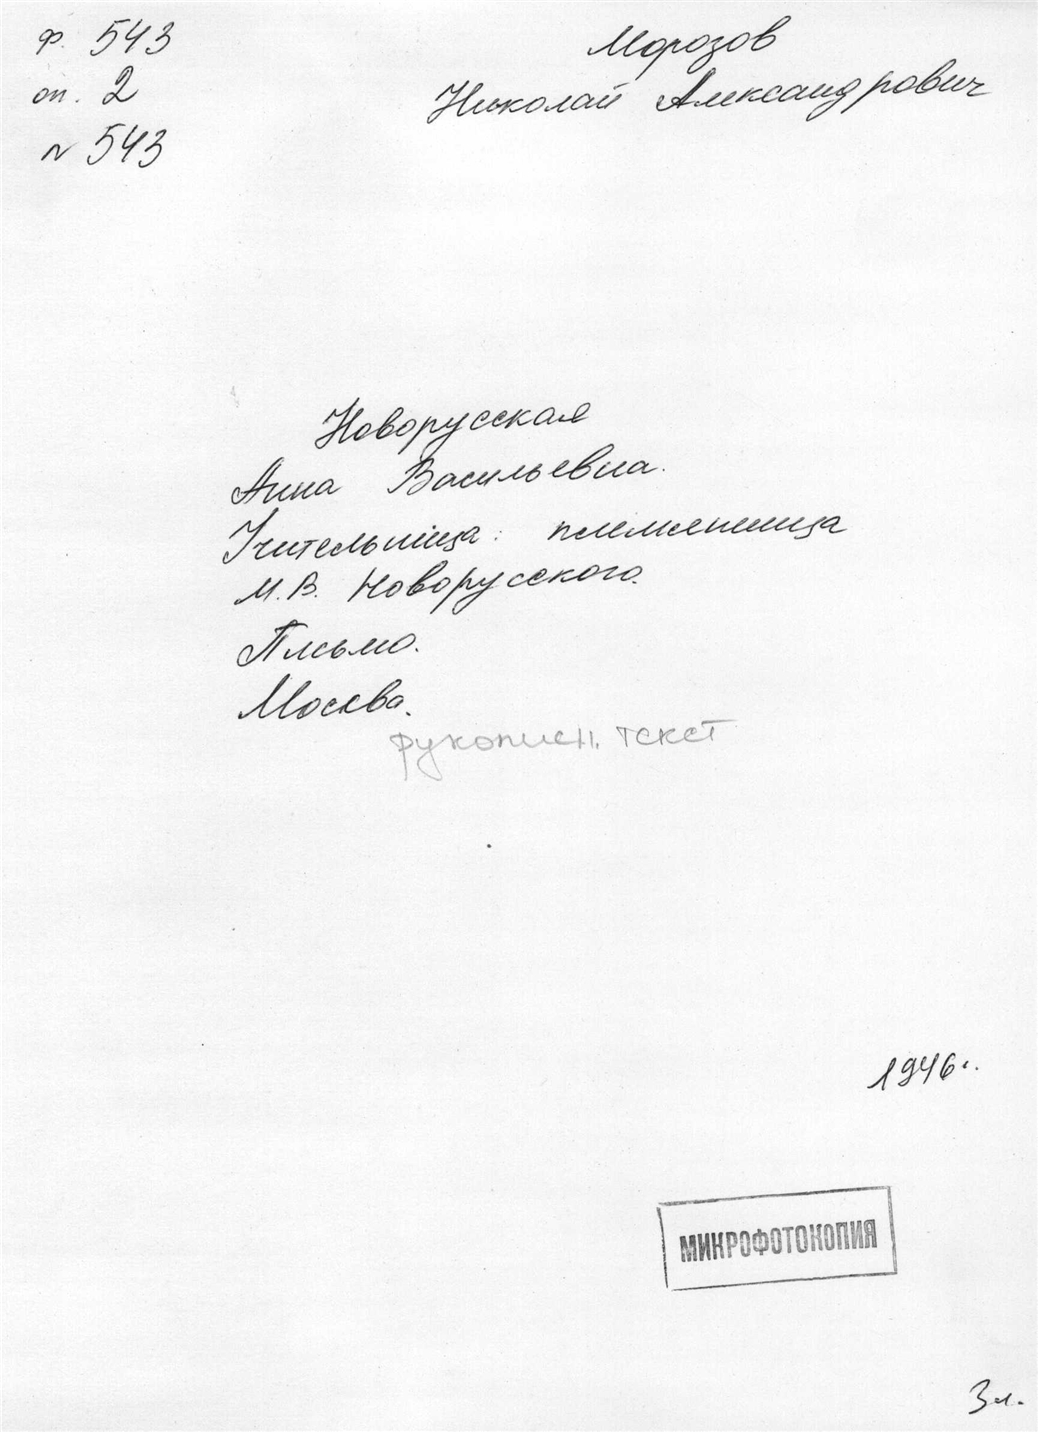 ф. 543
оп. 2
№ 543
Морозов
Николай Александрович
Новорусская
Анна Васильевна.
Учительница: племянница
М.В. Новорусского.
Письмо.
Москва.
рукописн. текст
1946 г.
МИКРОФОТОКОПИЯ
3 л.